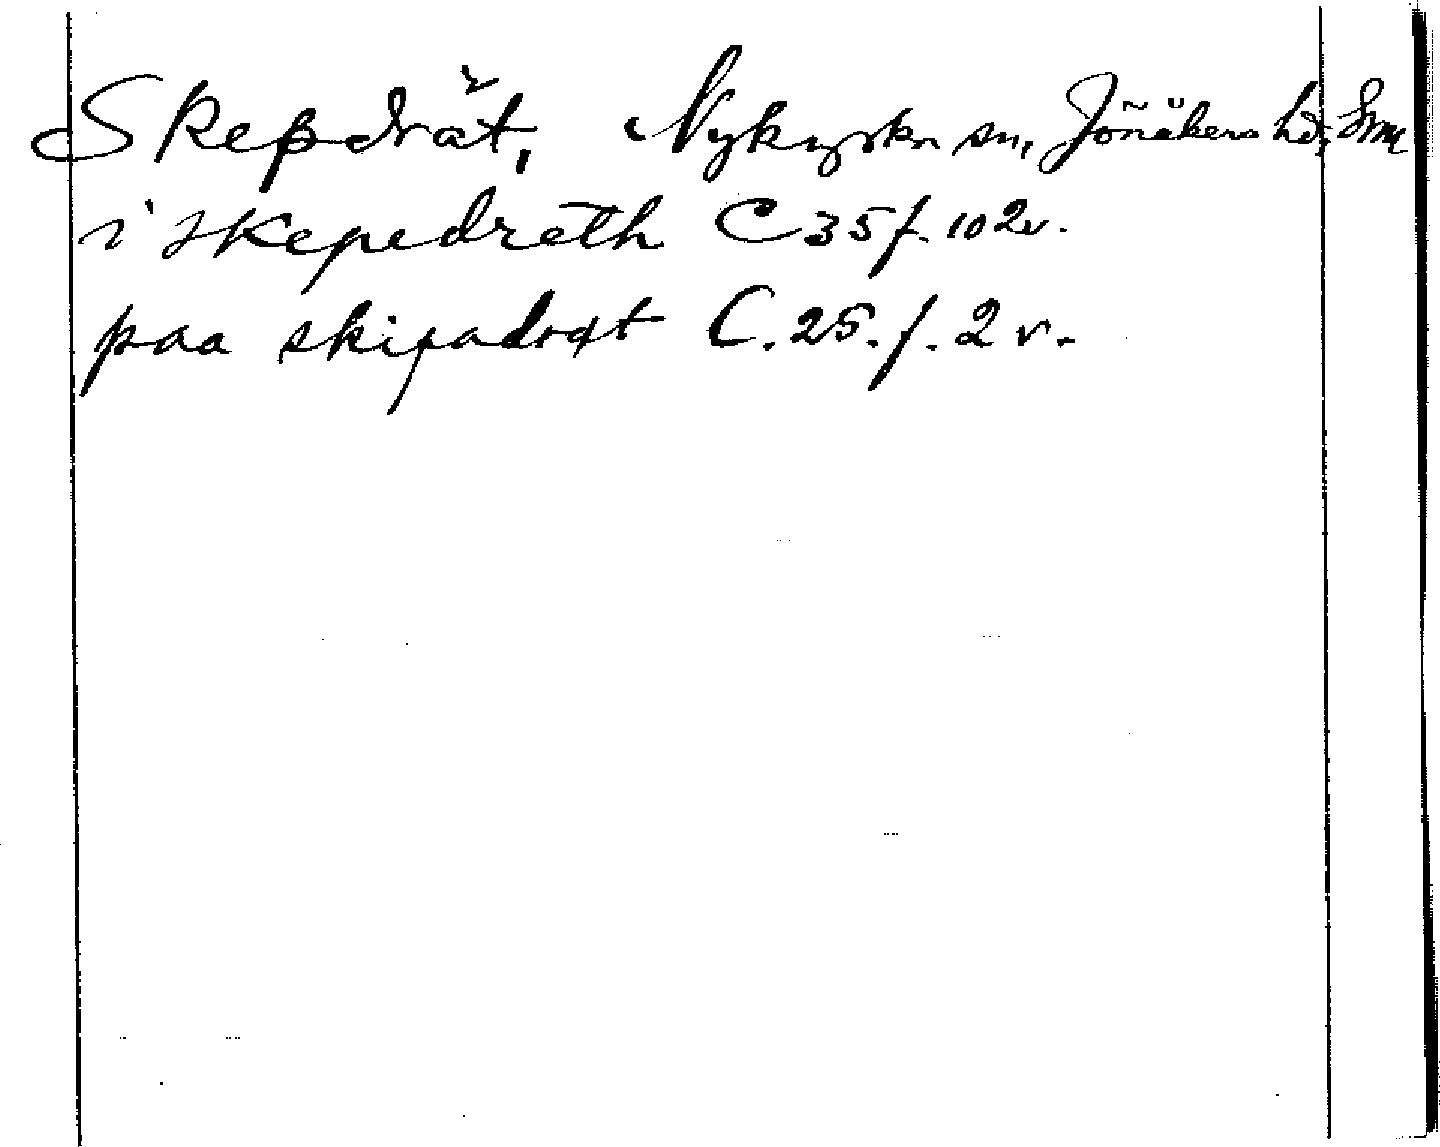 Skepdrät, Nykyrka sn, Jönåkers hd; Srm
i skepedreth C 35 f. 102v.
paa skipadræt C. 25. f. 2 v.